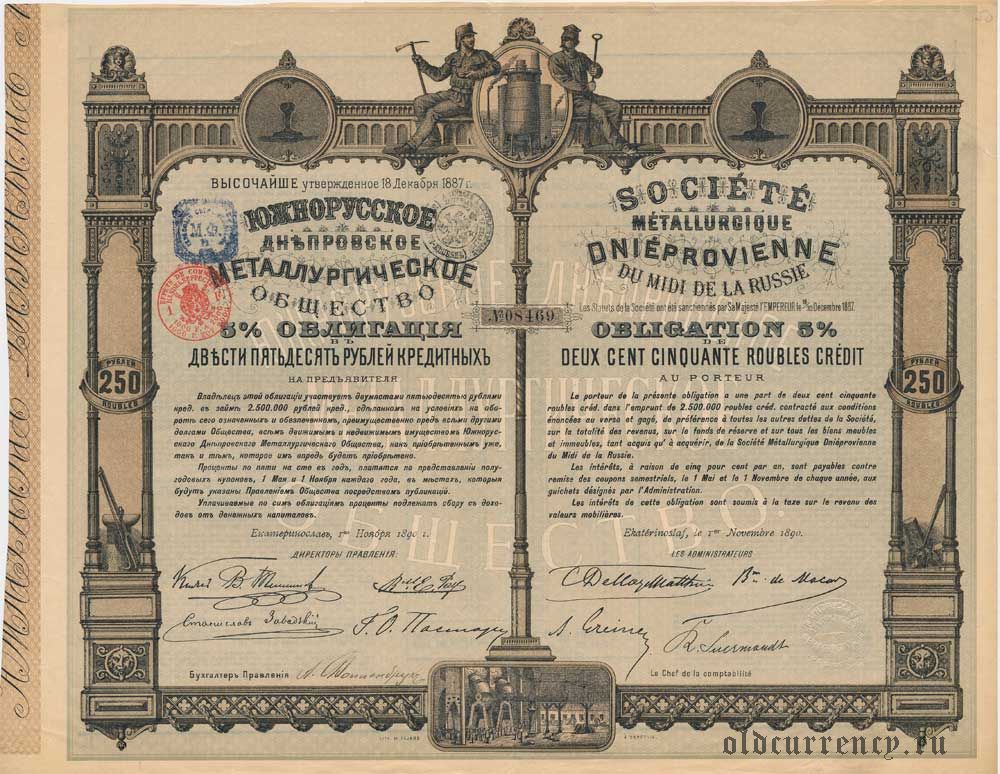 ВЫСОЧАЙШЕ утвержденное 18 Декабря 1887 г.
ЮЖНОРУССКОЕ
ДНѢПРОВСКОЕ
МЕТАЛЛУРГИЧЕСКОЕ
ОБЩЕСТВО
5% ОБЛИГАЦІЯ
ВЪ
ДВѢСТИ ПЯТЬДЕСЯТЪ РУБЛЕЙ КРЕДИТНЫХЪ
НА ПРЕДЪЯВИТЕЛЯ
Владѣлецъ этой облигаціи участвуетъ двумястами пятьюдесятью рублями
кред. въ займѣ 2.500.000 рублей кред., сдѣланномъ на условіяхъ на обо-
ротѣ сего означенныхъ и обезпеченномъ, преимущественно предъ всѣми другими
долгами Общества, всѣмъ движимымъ и недвижимымъ имуществомъ Южнорус-
скаго Днѣпровскаго Металлургическаго Общества, какъ пріобрѣтеннымъ уже,
такъ и тѣмъ, которое имъ впредь будетъ пріобрѣтено.
Проценты по пяти на сто въ годъ, платятся по представленіи полу-
годовыхъ купоновъ, 1 Мая и 1 Ноября каждаго года, въ мѣстахъ, которыя
будутъ указаны Правленіемъ Общества посредствомъ публикацій.
Уплачиваемые по симъ облигаціямъ проценты подлежатъ сбору съ дохо-
довъ отъ денежныхъ капиталовъ.
Екатеринославъ, 1го Ноября 1890 г.
ДИРЕКТОРЫ ПРАВЛЕНІЯ:
Станиславъ
Бухгалтеръ Правленія
№ 08469
SOCIÉTÉ
MÉTALLURGIQUE
DNIÉPROVIENNE
DU MIDI DE LA RUSSIE
Les Statuts de la Société ont été sanctionnés par Sa Majesté l'EMPEREUR le Décembre 1887.
OBLIGATION 5%
DE
DEUX CENT CINQUANTE ROUBLES CRÉDIT
AU PORTEUR
Le porteur de la présente obligation a une part de deux cent cinquante
roubles créd. dans l'emprunt de 2.500.000 roubles créd. contracté aux conditions
énoncées au verso et gagé, de préférence à toutes les autres dettes de la Société,
sur la totalité des revenus, sur le fonds de réserve et sur tous les biens meubles
et immeubles, tant acquis qu'à acquérir, de la Société Métallurgique Dniéprovienne
du Midi de la Russie.
Les intérêts, à raison de cinq pour cent par an, sont payables contre
remise des coupons semestriels, le 1 Mai et le 1 Novembre de chaque année, aux
guichets désignés par l'Administration.
Les intérêts de cette obligation sont soumis à la taxe sur le revenu des
valeurs mobilières.
Ekatérinoslaf, le 1er Novembre 1890.
LES ADMINISTRATEURS
Le Chef de la comptabilité
РУБЛЕЙ
250
ROUBLES
РУБЛЕЙ
250
ROUBLES
oldcurrency.ru